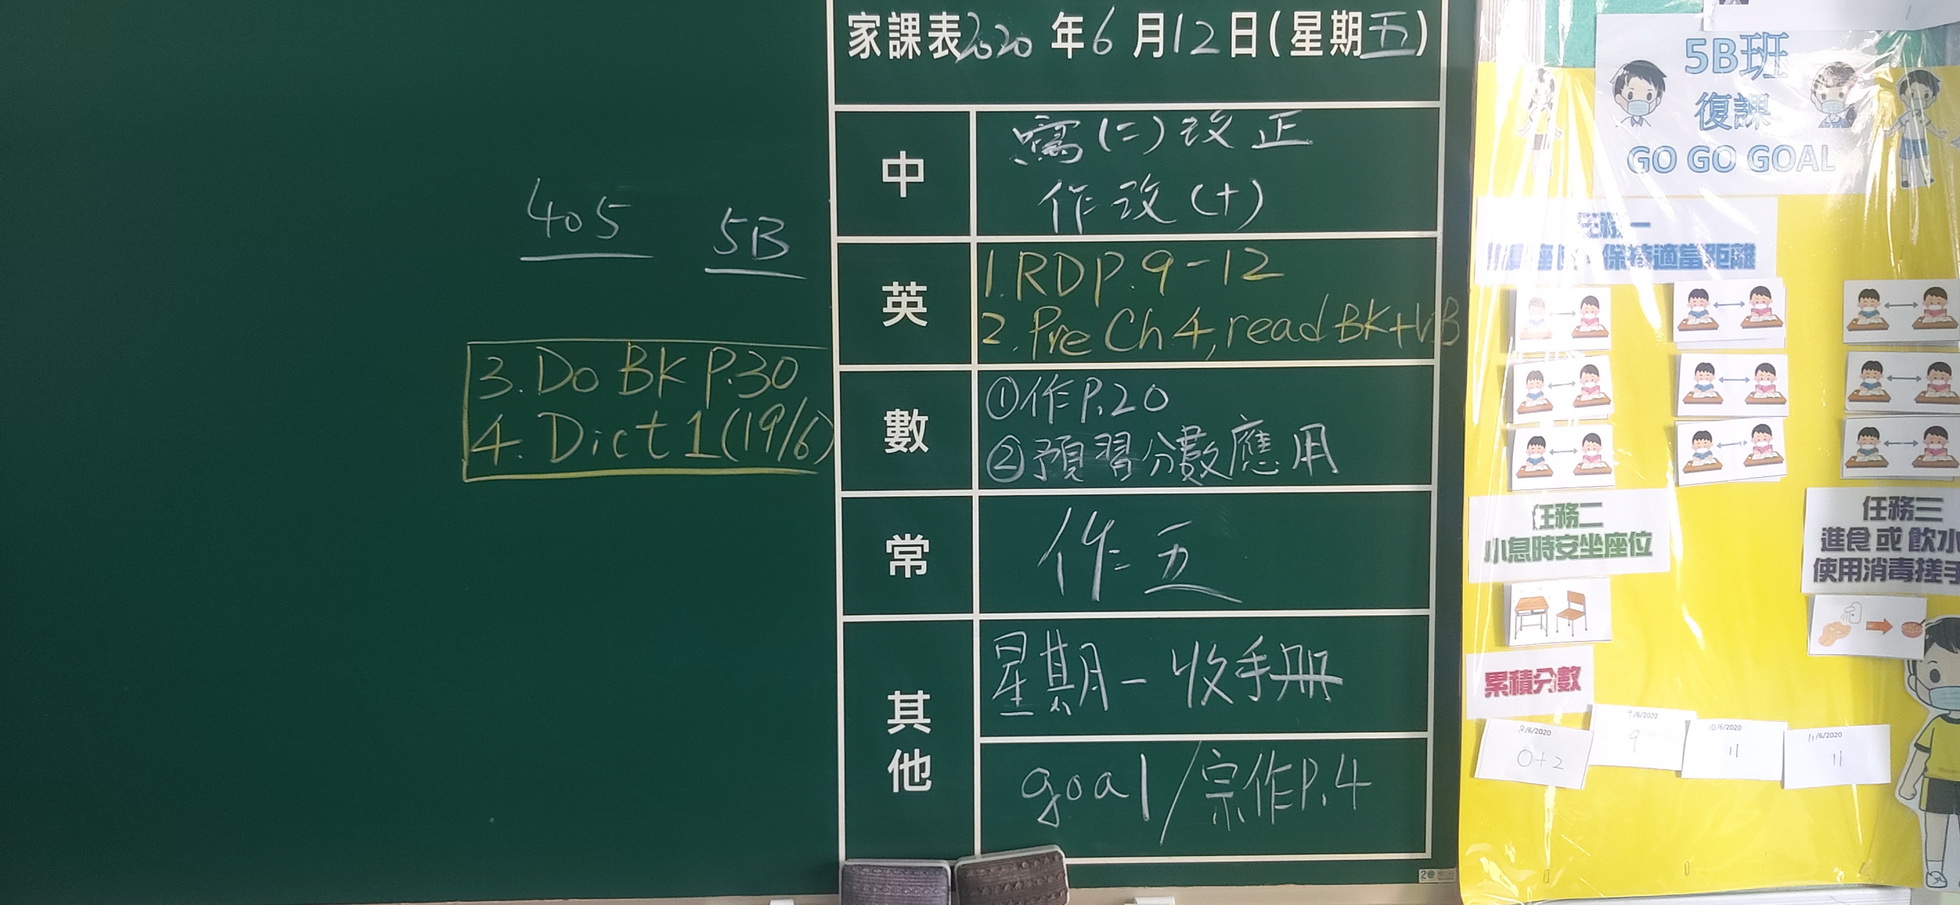 家課表2020年6月12日(星期五)
405
5B
中
寫(二)改正
作改(十)
英
1.RDP.9-12
2.Pre Ch 4, read BK+WB
3.Do BK P.30
4.Dict 1(19/6)
數
①作P.20
②預習分數應用
常
作五
其他
星期一收手冊
goal/宗作P.4
5B班
復課
GO GO GOAL
任務一
保持適當距離
任務二
小息時安坐座位
任務三
進食或飲水
使用消毒搓手
累積分數
9/6/2020
9
10/6/2020
11
11/6/2020
11
0+2